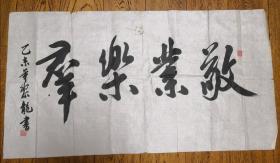 敬業樂羣
乙未年黎龍書